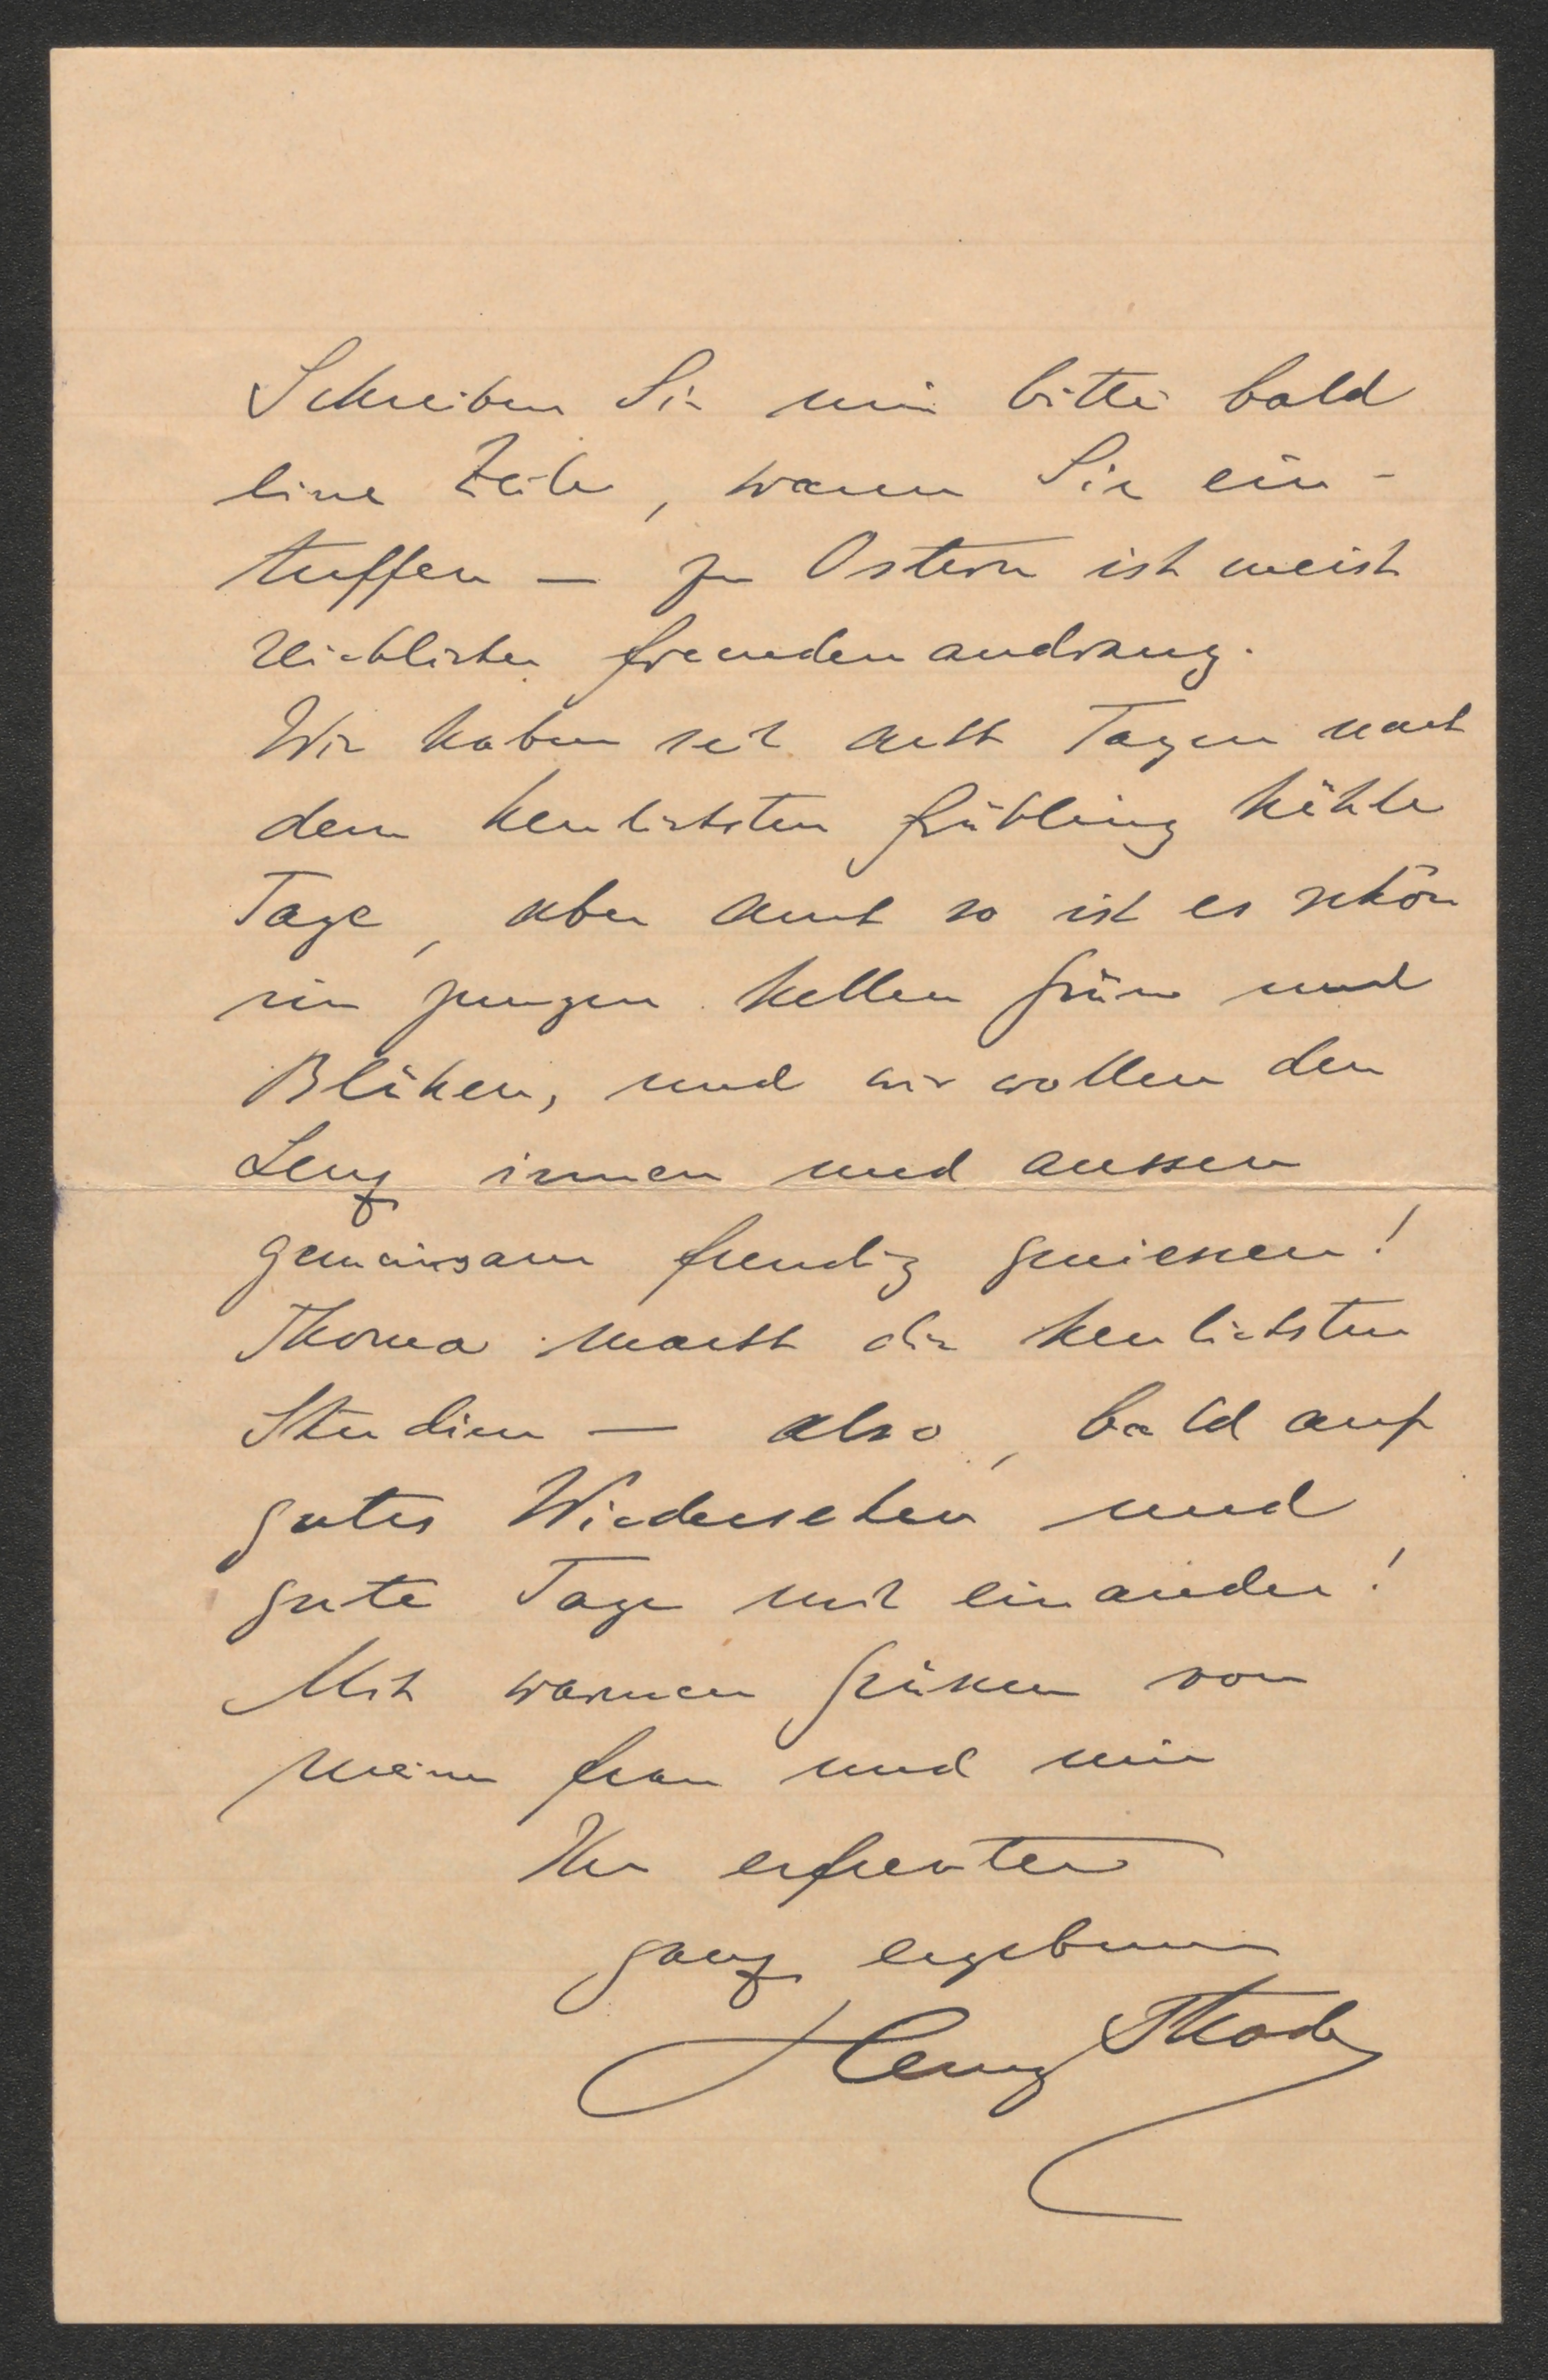 Schreiben Sie mir bitte bald
eine Zeile, wann Sie ein-
treffen — zu Ostern ist meist
reichlicher Fremdenandrang.
Wir haben seit acht Tagen nach
dem herrlichsten Frühling kühle
Tage, aber auch so ist es schön
im jungen hellen Grün und
Blühen, und wir wollen den
Lenz innen und aussen
gemeinsam freudig geniessen!
Thoma macht die herrlichsten
Studien — also, bald auf
gutes Wiedersehen und
gute Tage mit einander!
Mit warmen Grüssen von
meiner Frau und mir
Ihr erfreuter
ganz ergebener
Henry Thode